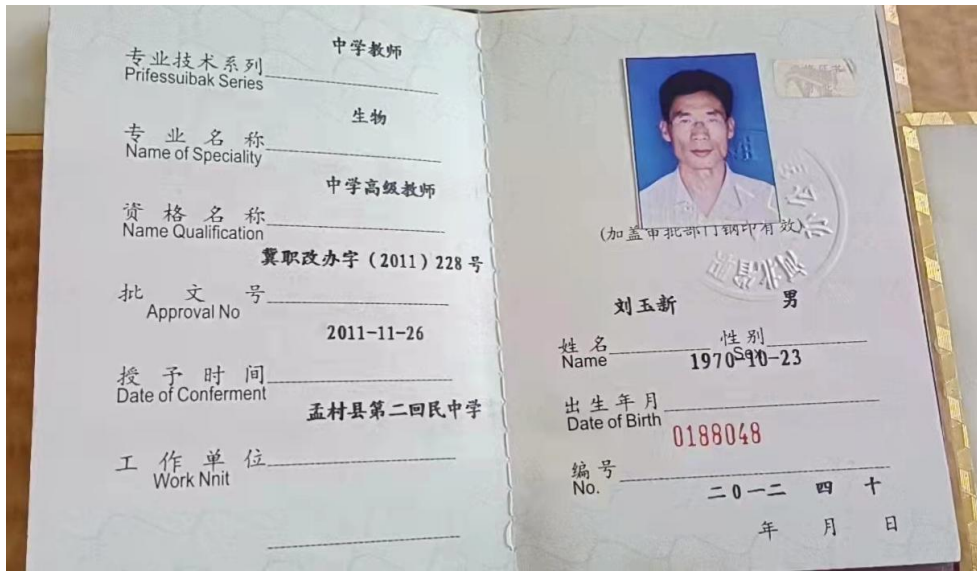 中学教师
专业技术系列
Prifessuibak Series
生物
专业名称
Name of Speciality
中学高级教师
资格名称
Name Qualification
冀职改办字（2011）228号
批文号
Approval No
2011-11-26
授予时间
Date of Conferment
孟村县第二回民中学
工作单位
Work Nnit
(加盖审批部门钢印有效)
河北省职
办公室
刘玉新 男
姓名 性别
Name Sex
1970-10-23
出生年月
Date of Birth
0188048
编号
No.
二0一二 四 十
年 月 日